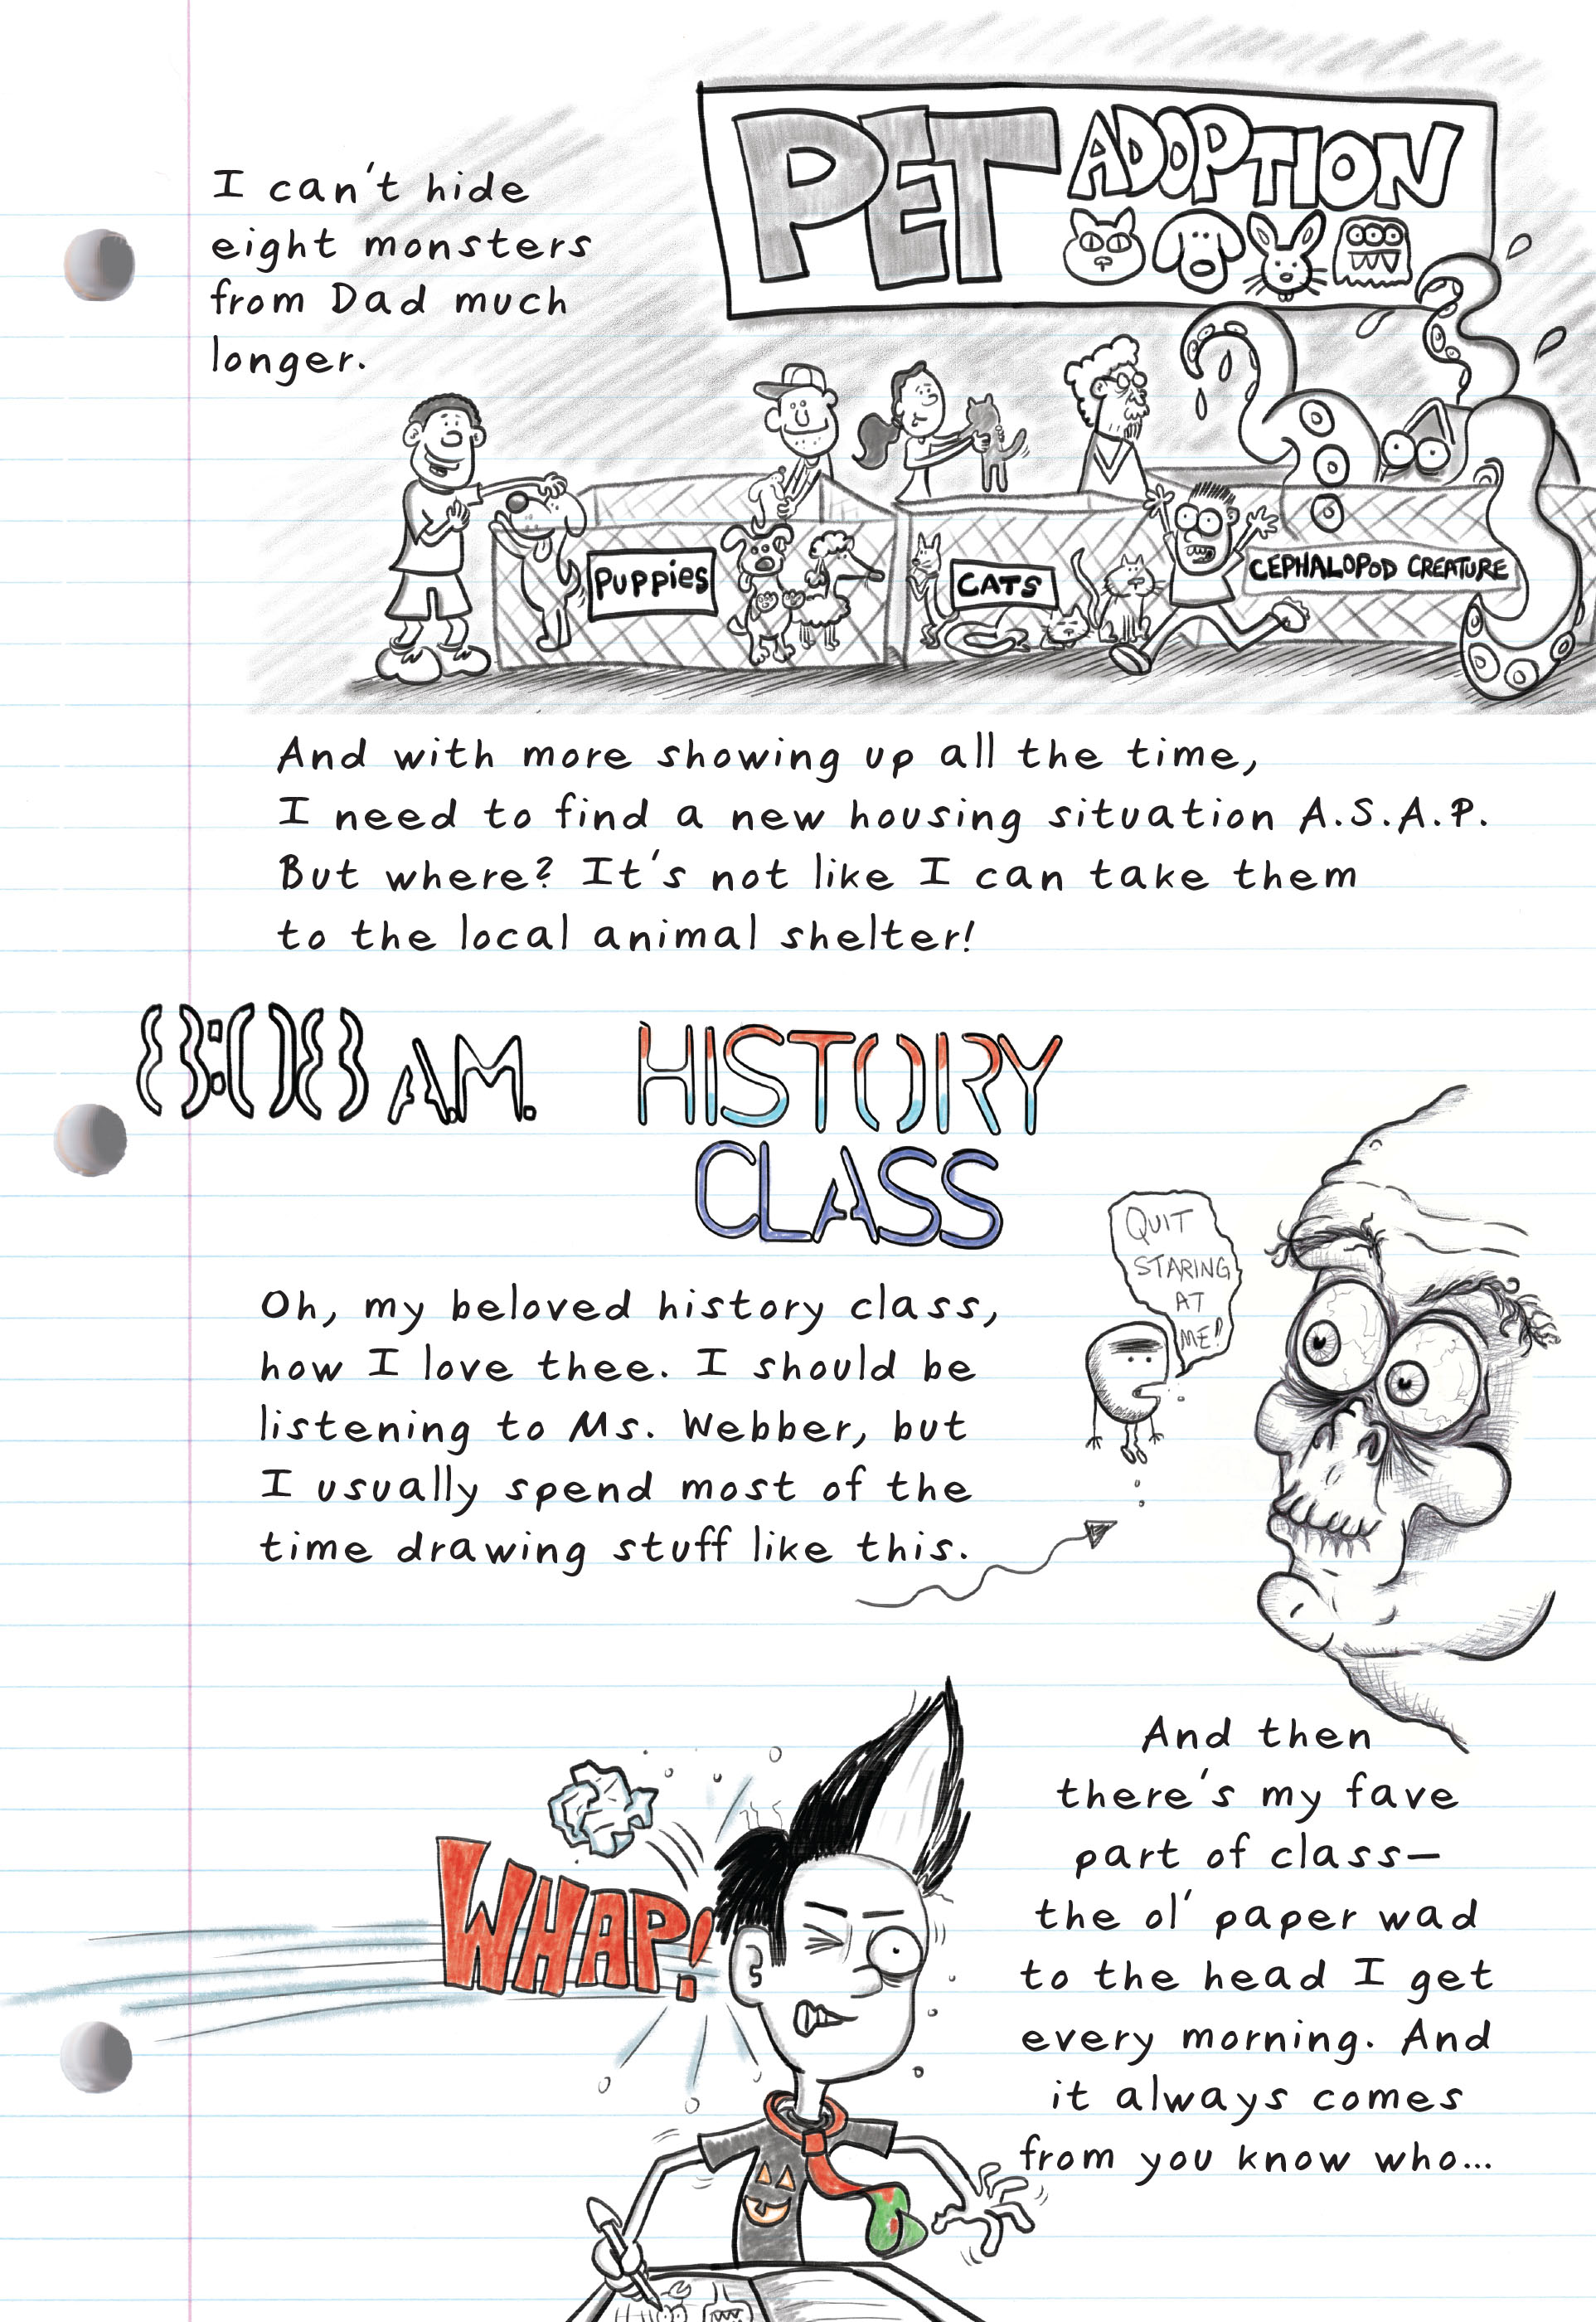 PET ADOPTION
I can't hide
eight monsters
from Dad much
longer.
PUPPIES
CATS
CEPHALOPOD CREATURE
And with more showing up all the time,
I need to find a new housing situation A.S.A.P.
But where? It's not like I can take them
to the local animal shelter!
8:08 A.M.
HISTORY
CLASS
QUIT
STARING
AT
ME!
Oh, my beloved history class,
how I love thee. I should be
listening to Ms. Webber, but
I usually spend most of the
time drawing stuff like this.
WHAP!
And then
there's my fave
part of class—
the ol' paper wad
to the head I get
every morning. And
it always comes
from you know who...